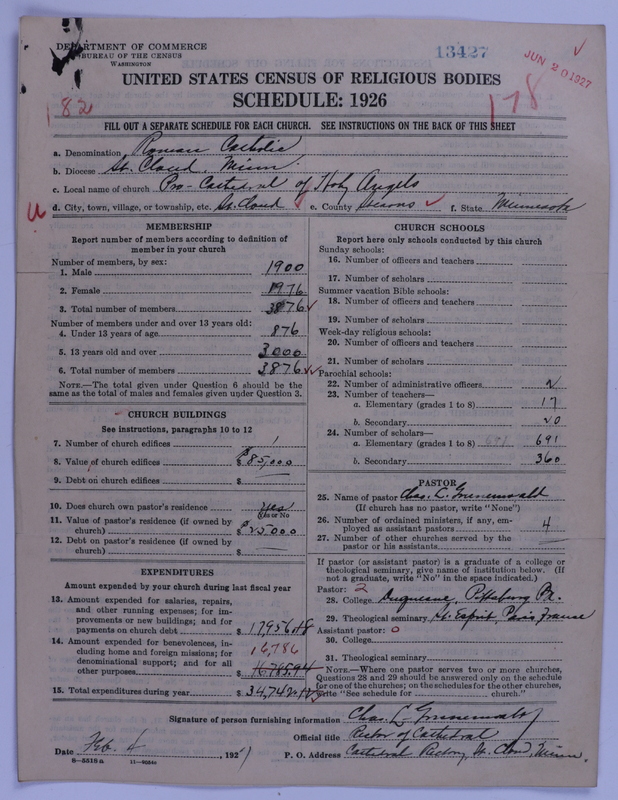 DEPARTMENT OF COMMERCE
BUREAU OF THE CENSUS
WASHINGTON
13427
JUN 20 1927
UNITED STATES CENSUS OF RELIGIOUS BODIES
SCHEDULE: 1926
182
178
FILL OUT A SEPARATE SCHEDULE FOR EACH CHURCH. SEE INSTRUCTIONS ON THE BACK OF THIS SHEET
a. Denomination Roman Catholic
b. Diocese St. Cloud, Minn.
c. Local name of church Pro-Cathedral of Holy Angels
d. City, town, village, or township, etc. St. Cloud e. County Stearns f. State Minnesota
MEMBERSHIP
Report number of members according to definition of
member in your church
Number of members, by sex:
1. Male 1900
2. Female 1976
3. Total number of members 3876
Number of members under and over 13 years old:
4. Under 13 years of age 876
5. 13 years old and over 3000
6. Total number of members 3876
NOTE.—The total given under Question 6 should be
same as the total of males and females given under Question 3.
CHURCH BUILDINGS
See instructions, paragraphs 10 to 12
7. Number of church edifices 1
8. Value of church edifices $85,000
9. Debt on church edifices $
10. Does church own pastor's residence Yes
Yes or No
11. Value of pastor's residence (if owned by
church) $25000
12. Debt on pastor's residence (if owned by
church) $
EXPENDITURES
Amount expended by church during last fiscal year
13. Amount expended for salaries, repairs,
and other running expenses; for im-
provements or new buildings; and for
payments on church debt $17956.18
14. Amount expended for benevolences, in-
cluding home and foreign missions; for
denominational support; and for all
other purposes $16785.94
16,786
15. Total expenditures during year $34,742
CHURCH SCHOOLS
Report here only schools conducted by this church
Sunday schools:
16. Number of officers and teachers
17. Number of scholars
Summer vacation Bible schools:
18. Number of officers and teachers
19. Number of scholars
Week-day religious schools:
20. Number of officers and teachers
21. Number of scholars
Parochial schools:
22. Number of administrative officers 2
23. Number of teachers—
a. Elementary (grades 1 to 8) 17
b. Secondary 20
24. Number of scholars—
a. Elementary (grades 1 to 8) 691 691
b. Secondary 360
PASTOR
25. Name of pastor Chas. L. Grunenwald
(If church has no pastor, write "None")
26. Number of ordained ministers, if any, em-
ployed as assistant pastors 4
27. Number of other churches served by the
pastor or his assistants
If pastor (or assistant pastor) is a graduate of a college or
theological seminary, give name of institution below. (If
not a graduate, write "No" in the space indicated.)
Pastor: 2
28. College Duquesne, Pittsburg Pa.
29. Theological seminary St. Esprit, Paris France
Assistant pastor: 0
30. College
31. Theological seminary
NOTE.—Where one pastor serves two or more churches,
Questions 28 and 29 should be answered only on the schedule
for one of the churches; on the schedules for the other churches,
write "See schedule for church."
Signature of person furnishing information Chas. L. Grunenwald
Official title Rector of Cathedral
Date Feb. 4, 1927
P. O. Address Cathedral Rectory, St. Cloud, Minn.
8—5518a 11—9034b